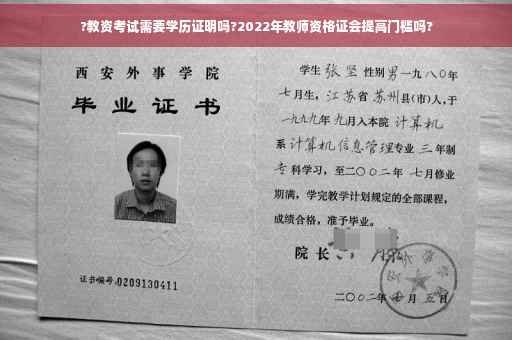 ?教资考试需要学历证明吗?2022年教师资格证会提高门槛吗?
西安外事学院
毕业证书
证书编号:0209130411
学生 张坚 性别 男 一九八〇年
七月生, 江苏省 苏州县(市)人,于
一九九九年九月入本院 计算机
系 计算机信息管理专业 三年制
专科学习, 至二〇〇二年 七月修业
期满, 学完教学计划规定的全部课程,
成绩合格, 准予毕业。
院长
二〇〇二年 月五日